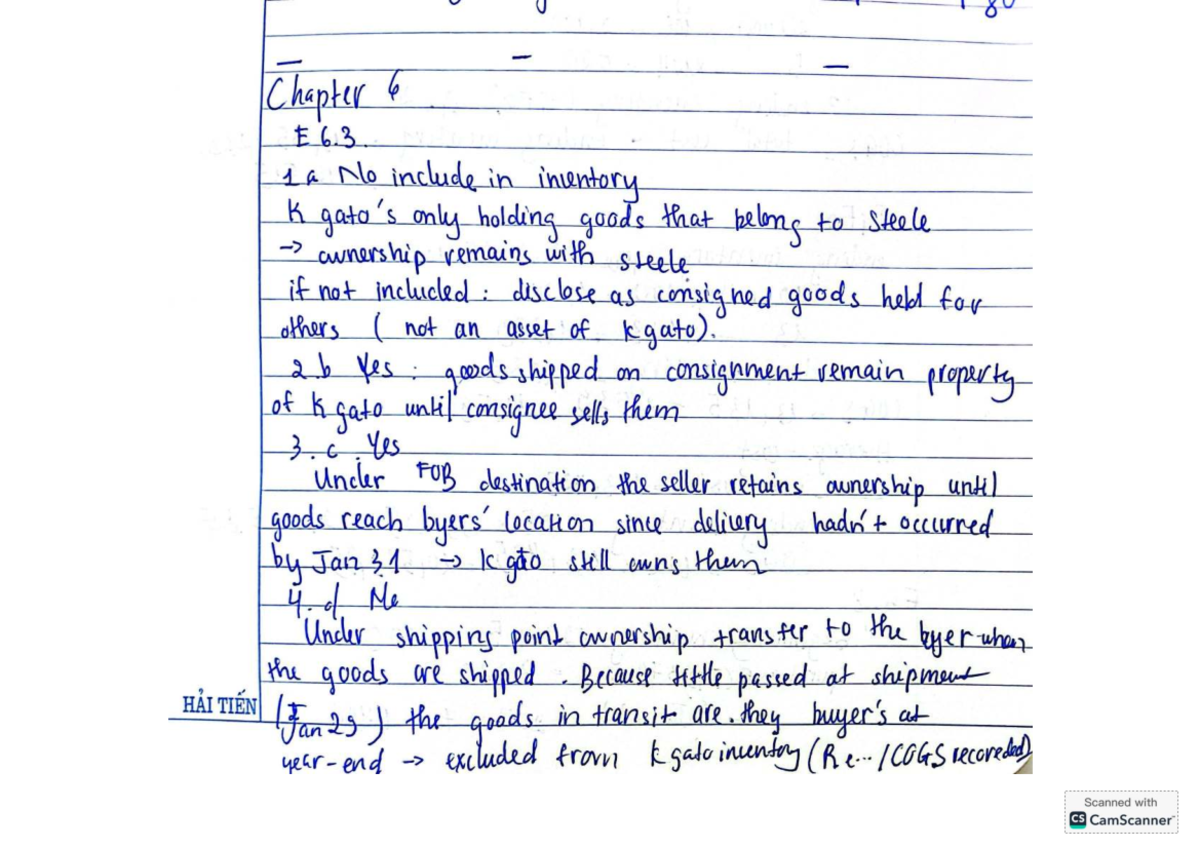 Chapter 6
E 6.3
1 a No include in inventory
K gato's only holding goods that belong to Steele
→ ownership remains with steele
if not included : disclose as consigned goods held for
others ( not an asset of kgato).
2.b Yes : goods shipped on consignment remain property
of K gato until consignee sells them
3. c . Yes
Under FOB destination the seller retains ownership until
goods reach byers' location since delivery hadn't occurred
by Jan 31 → k gato still owns them
4. d No
Under shipping point ownership transfer to the byer when
the goods are shipped . Because tittle passed at shipment
HẢI TIẾN
(Jan 29) the goods in transit are. they buyer's at
year-end → excluded from kgato inventory (Re... / COGS recoreded)
Scanned with
CS CamScanner